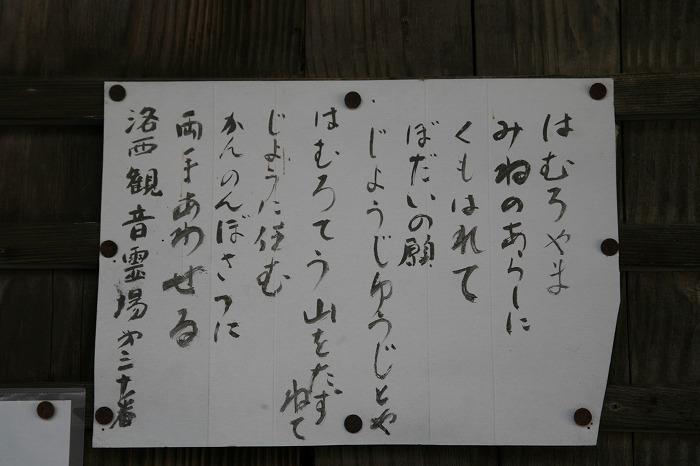 はむろやま
みねのあらしに
くもはれて
ぼだいの願
じょうじゆうじとや
はむろてう山をたずねて
じように住む
かんのんぼさつに
両手あわせる
洛西観音霊場第三十番